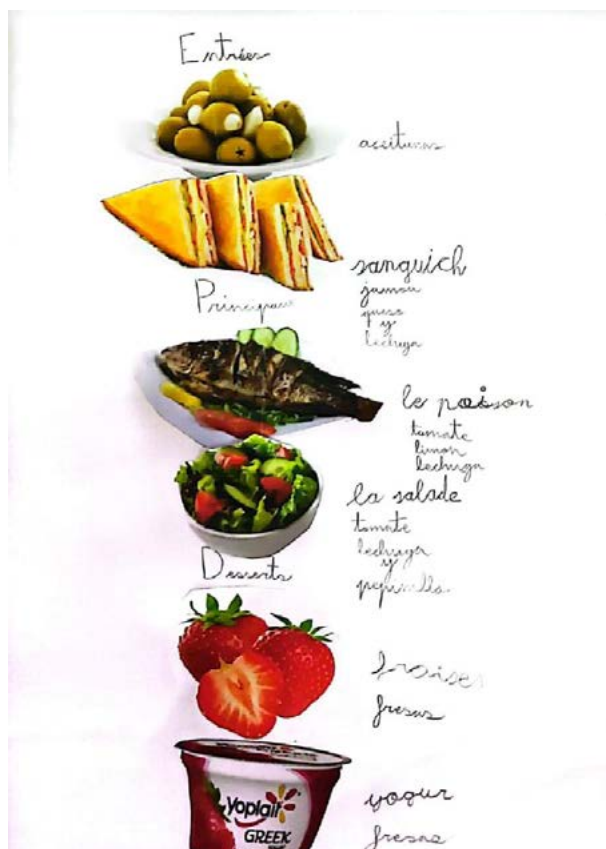 Entrées
aceitunas
sanguich
jamon
queso
y
lechuga
Principaux
le poison
tomate
limon
lechuga
la salade
tomate
lechuga
y
pepinillo
Desserts
fraises
fresas
Yoplait
GREEK
yogur
fresas